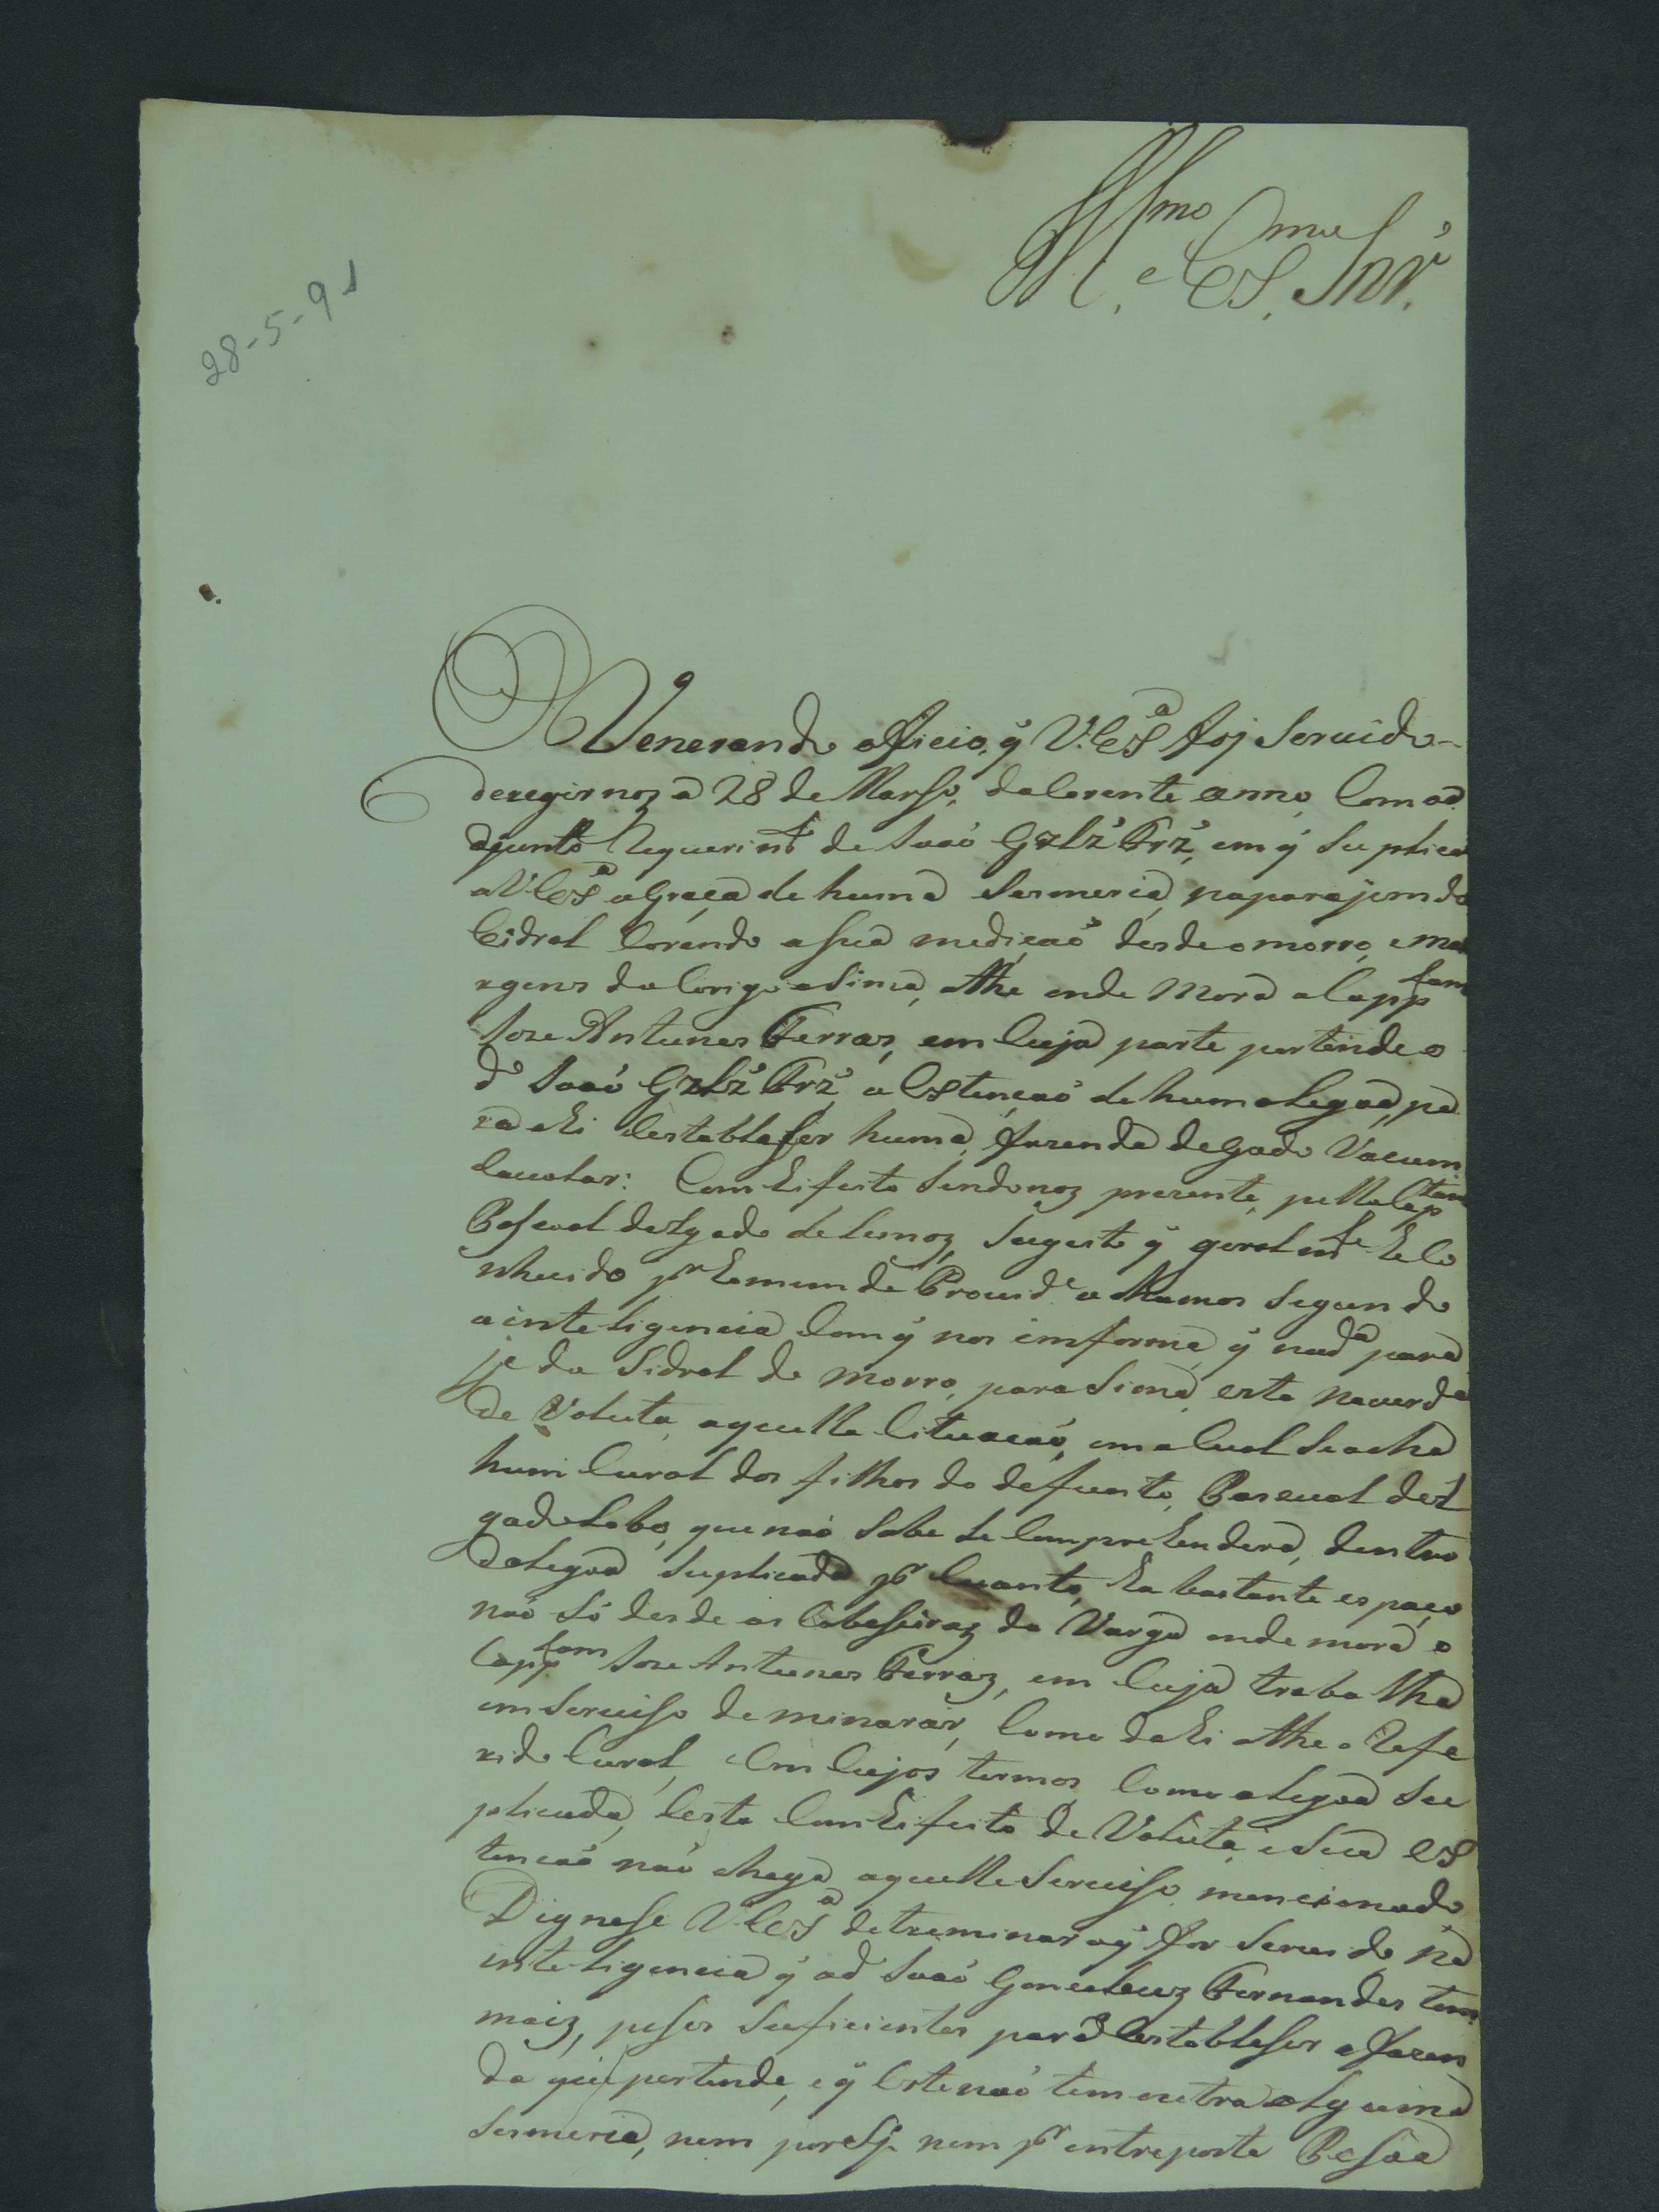 Illmo e Exmo Snr.
28-5-91
O Venerando oficio, q̃ V. Exª foj Servido
deregirnoz a 28 de Marso, do Corente anno, Com o ad
djunto Requerimto de Joaó Gzlz̃ Frz̃, em q̃ Suplica
a V. Exª a Graça de huma Sesmeria, na parajem do
Cidral Corendo a Sua mediçaó desde o morro, e ma
rgens do Corigo aSima, athe onde Mora o Cappam
Joze Antunes Ferraz, em Cuja parte pertende o
do Joaó Gzlz̃ Frz̃ a Estençaó de huma Legoa, pa
ra ahi Establaser huma fazenda de Gado Vacum
Cavalar: Com Efeito Sendonoz prezente, pello Captam
Pascoal delgado de Lemoz, Sugeito q̃ geralmte he Co
nhecido pr homem de Provide achamos Segundo
a inteligencia Com q̃ nos imforma, q̃ na da para
je do Sidral do Morro, para Sima, esta na verde
de Voluta, aquella Cituaçaó, em a Cual Se acha
hum Curral dos filhos do defunto, Pascual del
gado Lobo, que naó Sabe Se Comprehendera, dentro
da legoa Suplicada pr Cuanto, ha bastante espaço
naó Só desde as Cabeseiraz da Varga onde mora o
Cappam Joze Antunes Ferraz, em Cuja trabalha
em Serviso de minarar, Como dahi athe o Refe
rido Curral, Em Cujos termos, Como a legoa Su
plicada, Esta Com Efeito de Voluta, e Sua Ex
tençaó naó chega aquelle Serviso mencionado
Dignese V. Exª detreminar o q̃ for Servido, na
inteligencia q̃ o do Joaó Goncalvez Fernandes tem
maiz, poses Suficientes para Estableser a fazen
da que pertende, e q̃ Este naó tem outra alguma
Sesmeria, nem por Sj. nem pr entreposta Pesoa